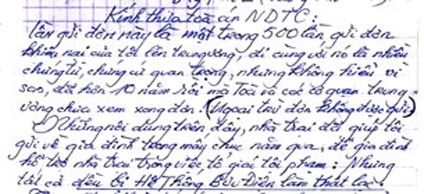 Kính thưa toà án NDTC:
lần gửi đơn này là một trong 500 lần gửi đơn
khiếu nại của tôi lên trung ương, đi cùng với nó là nhiều
chứng từ, chứng cứ quan trọng, nhưng không hiểu vì
sao, đã hơn 10 năm rồi mà toà và các cơ quan trung
ương chưa xem xong đơn. (Ngoại trừ đơn không được gửi)
Những nội dung trên đây, nhà trại đã giúp tôi
gửi về gia đình trong mấy chục năm qua, để gia đình
hỗ trợ nhà trại trong việc tố giác tội phạm: Nhưng
tất cả đều bị Hệ Thống Bưu Điện làm thất lạc